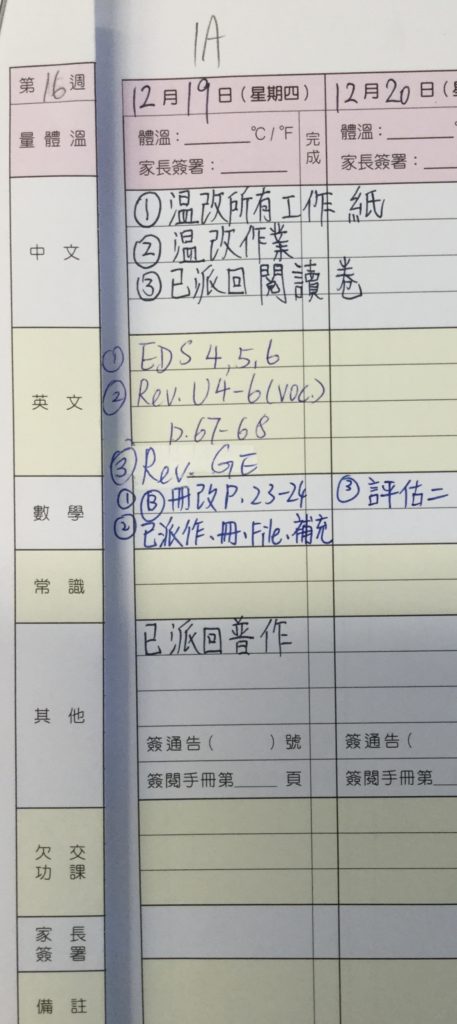 1A
第16週
12月19日(星期四)
12月20日(
量體溫
體溫：______℃/℉
完成
體溫：______
家長簽署：______
家長簽署：______
中文
①温改所有工作紙
②温改作業
③已派回閱讀卷
英文
①EDS 4,5,6
②Rev. U4-6(voc.)
p.67-68
③Rev. GE
數學
①Ⓑ冊改P.23-24
③評估二
②已派作、冊、File、補充
常識
其他
已派回普作
簽通告( )號
簽通告(
簽閱手冊第____頁
簽閱手冊第____
欠交功課
家長簽署
備註